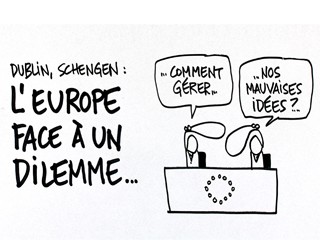 DUBLIN, SCHENGEN :
L'EUROPE
FACE À UN
DILEMME...
... COMMENT
GÉRER...
... NOS
MAUVAISES
IDÉES ?...